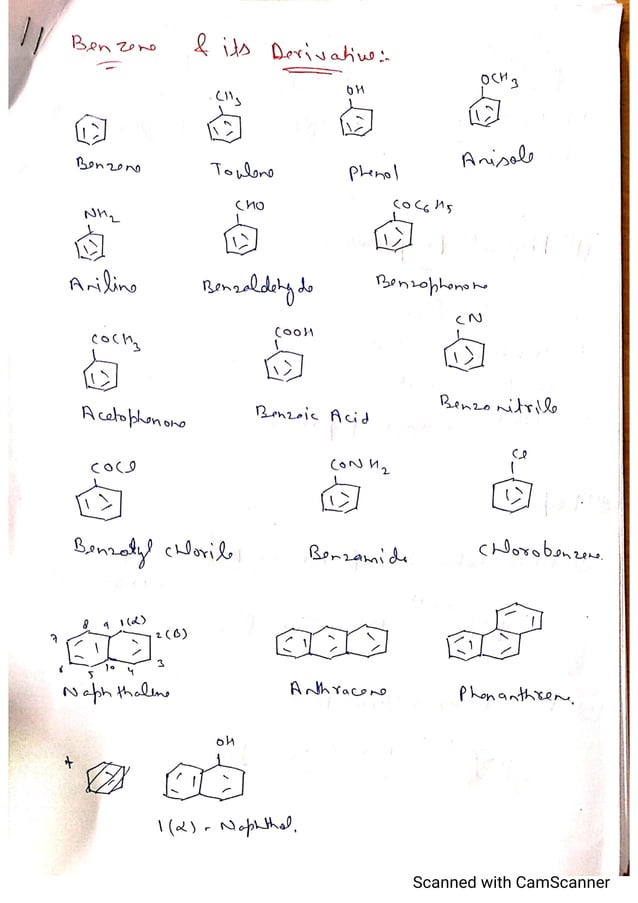 11
Benzene & its Derivative:-
CH3 OH OCH3
Benzene Toulene Phenol Anisole
NH2 CHO COC6H5
Aniline Benzaldehyde Benzophenone
COCH3 COOH CN
Acetophenone Benzoic Acid Benzonitrile
COCl CONH2 Cl
Benzolyl chlorile Benzamide Chlorobenzene.
8 9 1(α)
7 2(β)
6 5 10 4 3
Naphthalene Anthracene Phenanthrene.
*
OH
1(α) - Naphthol.
Scanned with CamScanner